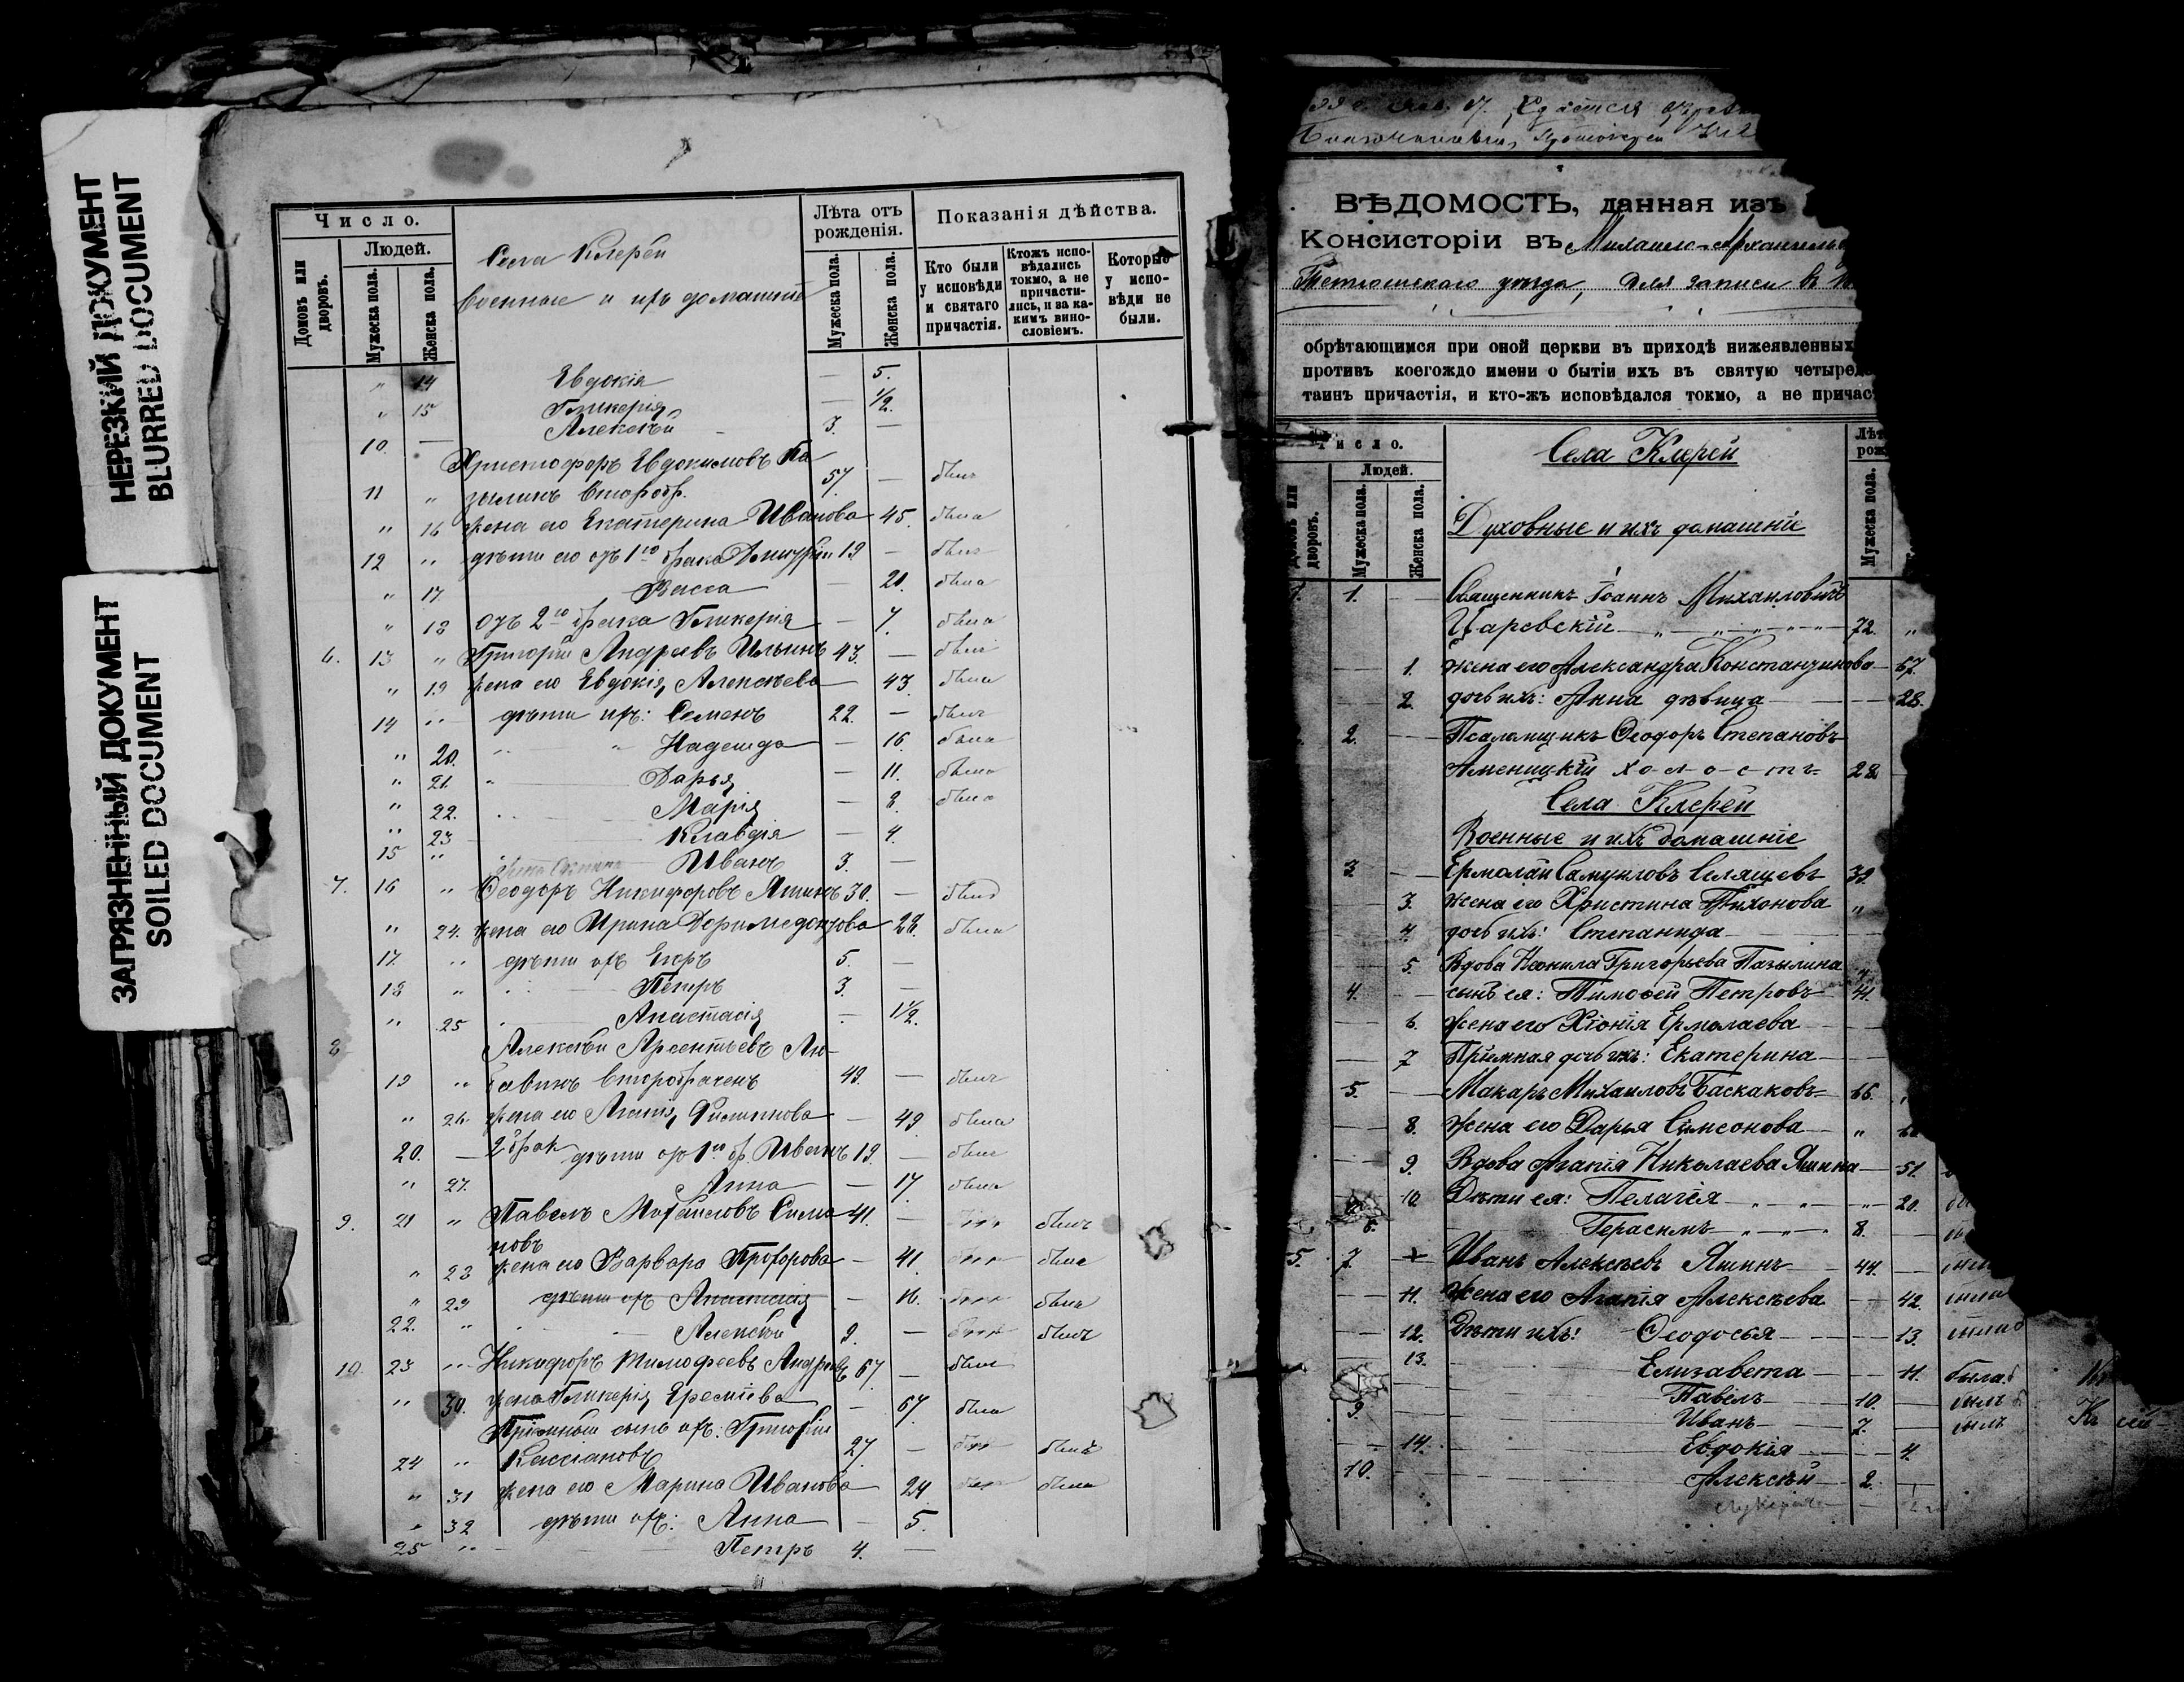 НЕРЕЗКИЙ ДОКУМЕНТ
BLURRED DOCUMENT
ЗАГРЯЗНЕННЫЙ ДОКУМЕНТ
SOILED DOCUMENT
Число.
Людей.
Домовъ или дворовъ.
Мужеска пола.
Женска пола.
Села Клерей
военные и ихъ домашніе
Лѣта отъ рожденія.
Мужеска пола.
Женска пола.
Показанія дѣйства.
Кто были у исповѣди и святаго причастія.
Ктожъ исповѣдались токмо, а не причастились, и за какимъ винословіемъ.
Которые у исповѣди не были.
" 14 Евдокія — 5.
" 15 Гликерія — 1/2.
10 — Алексѣй 3. —
Христофоръ Евдокимовъ Па
11 " зылинъ второбр. 57. — былъ
" 16 жена его Екатерина Иванова 45. была
12 " дѣти его отъ 1го брака Димитрій 19 — былъ
" 17 Васса — 20. была
" 18 отъ 2го брака Гликерія — 7. была
6. 13 " Григорій Андреевъ Ильинъ 43. — былъ
" 19 жена его Евдокія Алексѣева 43. была
14 " дѣти ихъ: Семенъ 22. — былъ
" 20. " Надежда — 16. была
" 21. " Дарья — 11. была
" 22. Марія — 8. была
" 23 Клавдія — 4.
15 " Иванъ 3. —
7. 16 " Ѳеодоръ Никифоровъ Яшинъ 30. — былъ
" 24. жена его Ирина Дормедонтова 28. была
17. " дѣти ихъ Егоръ 5. —
18 " Петръ 3. —
" 25 Анастасія — 1 1/2.
8 Алексѣй Арсентьевъ Ля-
19 " бавинъ второбраченъ 49. — былъ
" 26. жена его Агапія Филиппова — 49 была
20. — 2 брак дѣти отъ 1го бр. Иванъ 19. — былъ
" 27. Анна — 17. была
9. 21 " Павелъ Михаиловъ Симо 41. — былъ
новъ
" 28 жена его Варвара Прохорова — 41. была
" 29 дѣти ихъ Анастасія — 16. была
22. " Алексѣй 9. — былъ
10 23 " Никифоръ Тимофеевъ Андреевъ 67. — былъ
" 30. жена Гликерія Еремѣева — 67. была
Пріемный сынъ ихъ: Григорій
24 " Кассіановъ 27. — былъ
" 31 жена его Марина Иванова 24 была
" 32 дѣти ихъ: Анна — 5.
25 " Петръ 4. —
ВѢДОМОСТЬ, данная изъ
Консисторіи въ Михаило-Архангельс
Тетюшскаго уѣзда, для записи въ
обрѣтающимся при оной церкви въ приходѣ нижеявленныхъ
противъ коегождо имени о бытіи ихъ въ святую четыреде
таинъ причастія, и кто-жъ исповѣдался токмо, а не причас
Число.
Людей.
дворовъ.
Мужеска пола.
Женска пола.
Села Клерей
Духовные и ихъ домашніе
Мужеска пола.
1. 1. — Священникъ Іоаннъ Михаиловичъ
Царевскій 72. "
— 1. жена его Александра Константинова 67.
— 2. дочь ихъ: Анна дѣвица — 28.
2. — Псаломщикъ Ѳеодоръ Степановъ
Аменицкій холостъ 28
Села Клерей
Военные и ихъ домашніе
3. — Ермолай Самуиловъ Селящевъ 39.
— 3. жена его Христина Тихонова "
— 4. дочь ихъ: Степанида
— 5. Вдова Неонила Григорьева Пазылина
4. — сынъ ея: Тимоѳей Петровъ 41.
— 6. жена его Хіонія Ермолаева
— 7 Пріемная дочь ихъ: Екатерина
5. — Макаръ Михаиловъ Баскаковъ 66.
— 8. жена его Дарья Симеонова "
— 9. Вдова Агапія Николаева Яшина 51.
10 Дѣти ея: Пелагея " 20.
6. Герасимъ 8.
5. 7. + Иванъ Алексѣевъ Яшинъ 44.
— 11. жена его Агапія Алексѣева 42. была
— 12. Дѣти ихъ: Ѳеодосья 13.
13. Елизавета 11. была
Павелъ 10. — былъ
9. Иванъ 7. — былъ
— 14. Евдокія 4.
10. Алексѣй 2. —